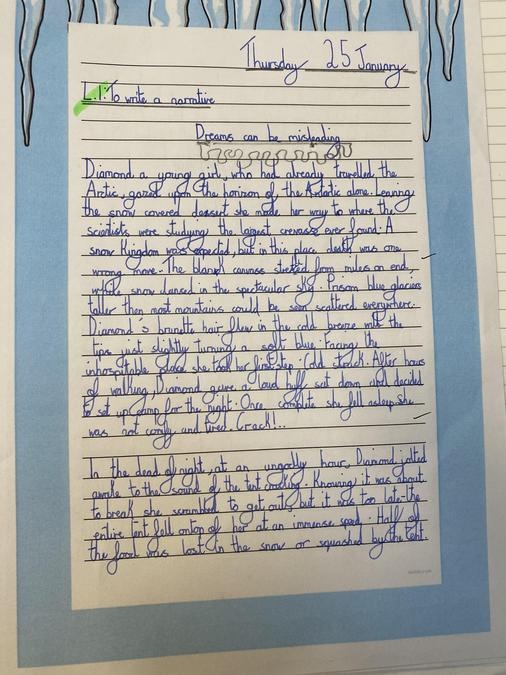 Thursday 25 January
L.I: To write a narrative
Dreams can be misleading
Diamond a young girl, who had already travelled the
Arctic, gazed upon the horizon of the Antartic alone. Leaving
the snow covered dessert she made her way to where the
scientists were studying the largest crevasse ever found. A
snow kingdom was expected, but in this place death was one
wrong move. The blank canvass streted from miles on end,
while snow danced in the spectacular sky. Prisom blue glaciers
taller then most mountains could be seen scattered everywhere.
Diamond's brunette hair flew in the cold breeze with the
tips just slightly turning a soft blue. Facing the
inhospitable place she took her first step. Cold struck. After hours
of walking, Diamond gave a loud huff sat down and decided
to set up camp for the night. Once complete she fell asleep. She
was not comfy and tired. Crack!...
In the dead of night, at an ungodly hour, Diamond jolted
awake to the sound of the tent cracking. Knowing it was about
to break she scrambled to get out, but it was too late-the
entire tent fell ontop of her at an immense speed. Half of
the food was lost in the snow or squashed by the tent.